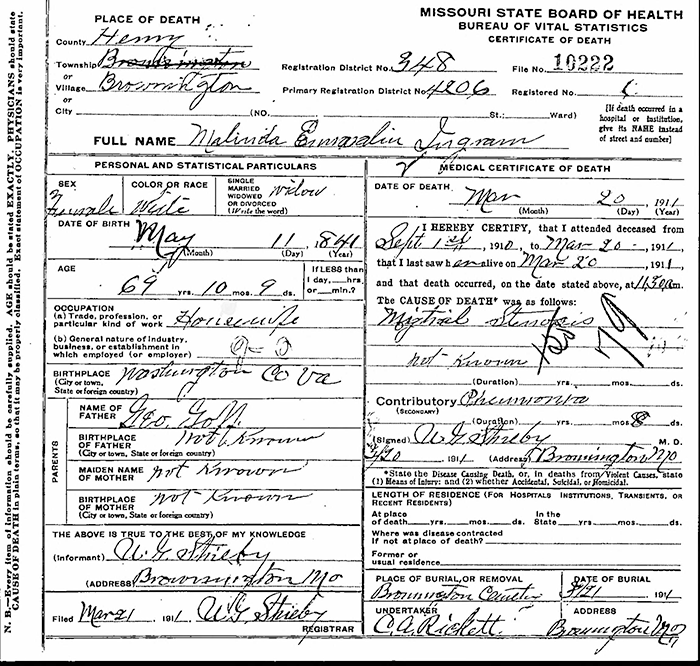 MISSOURI STATE BOARD OF HEALTH
BUREAU OF VITAL STATISTICS
CERTIFICATE OF DEATH
PLACE OF DEATH
County Henry
Township
or
Village Brownington
or
City (NO. St.; Ward)
Registration District No. 348 File No. 10222
Primary Registration District No. 4206 Registered No.
[If death occurred in a hospital or institution, give its NAME instead of street and number]
FULL NAME Malinda Ingram
PERSONAL AND STATISTICAL PARTICULARS
SEX Female
COLOR OR RACE White
SINGLE MARRIED WIDOWED OR DIVORCED (Write the word) Widow
DATE OF BIRTH May 11 1841
(Month) (Day) (Year)
AGE 69 yrs. 10 mos. 9 ds.
If LESS than 1 day, hrs. or min.?
OCCUPATION
(a) Trade, profession, or particular kind of work Housewife
(b) General nature of industry, business, or establishment in which employed (or employer)
BIRTHPLACE (City or town, State or foreign country) Washington Co Va
PARENTS
NAME OF FATHER Geo. Goff
BIRTHPLACE OF FATHER (City or town, State or foreign country) Not Known
MAIDEN NAME OF MOTHER Not Known
BIRTHPLACE OF MOTHER (City or town, State or foreign country) Not Known
THE ABOVE IS TRUE TO THE BEST OF MY KNOWLEDGE
(Informant) U. G. Shieby
(ADDRESS) Brownington Mo
Filed Mar 21 1911 U. G. Shieby
REGISTRAR
MEDICAL CERTIFICATE OF DEATH
DATE OF DEATH Mar 20 1911
(Month) (Day) (Year)
I HEREBY CERTIFY, that I attended deceased from
Sept 1st, 1910, to Mar 20, 1911
that I last saw her alive on Mar 20 1911,
and that death occurred, on the date stated above, at 11:30 am.
The CAUSE OF DEATH* was as follows:
Mitrial Stenosis
79
Not Known
(Duration) yrs. mos. ds.
Contributory Pneumonia
(SECONDARY)
(Duration) yrs. mos. 8 ds.
(Signed) U. G. Shieby M. D.
3/20 1911 (Address) Brownington Mo
*State the Disease Causing Death, or, in deaths from Violent Causes, state (1) Means of Injury; and (2) whether Accidental, Suicidal, or Homicidal.
LENGTH OF RESIDENCE (FOR HOSPITALS INSTITUTIONS, TRANSIENTS, OR RECENT RESIDENTS)
At place of death yrs. mos. ds. In the State yrs. mos. ds.
Where was disease contracted if not at place of death?
Former or usual residence
PLACE OF BURIAL OR REMOVAL Brownington
DATE OF BURIAL 3/21 1911
UNDERTAKER C. A. Rickett
ADDRESS Brownington Mo
N. B.—Every item of information should be carefully supplied. AGE should be stated EXACTLY. PHYSICIANS should state
CAUSE OF DEATH in plain terms, so that it may be properly classified. Exact statement of OCCUPATION is very important.